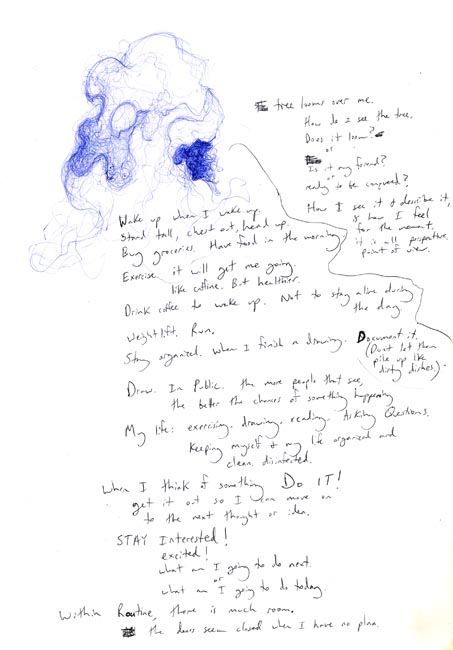 tree looms over me.
How do I see the tree.
Does it loom?
or
Is it my friend?
or
ready to be conquered?
How I see it & describe it,
is how I feel
for the moment.
it is all perspective,
point of view.
Wake up when I wake up.
Stand tall, chest out, head up.
Buy groceries. Have food in the morning
Exercise. it will get me going.
like caffine. But healthier.
Drink coffee to wake up. Not to stay alive during
the day
weightlift. Run.
Stay organized. When I finish a drawing. Document it.
(Dont let them
pile up like
dirty dishes).
Draw. In Public. the more people that see,
the better the chances of something happening
My life: exercising. drawing. reading. Asking Questions.
Keeping myself & my life organized and
clean. disinfected.
When I think of something Do IT!
get it out so I can move on
to the next thought or idea.
STAY Interested!
excited!
what am I going to do next.
or
what am I going to do today.
Within Routine, there is much room.
the doors seem closed when I have no plan.